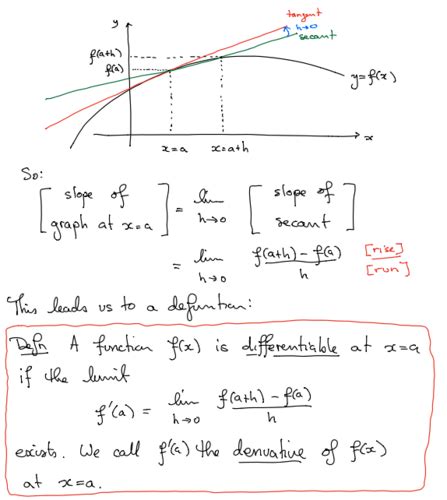 y
tangent
h→0
secant
f(a+h)
f(a)
y=f(x)
x
x=a
x=a+h
So:
[slope of graph at x=a] = lim h→0 [slope of secant]
= lim h→0 (f(a+h) - f(a))/h [rise]/[run]
This leads us to a definition:
Defn A function f(x) is differentiable at x=a
if the limit
f'(a) = lim h→0 (f(a+h) - f(a))/h
exists. We call f'(a) the derivative of f(x)
at x=a.